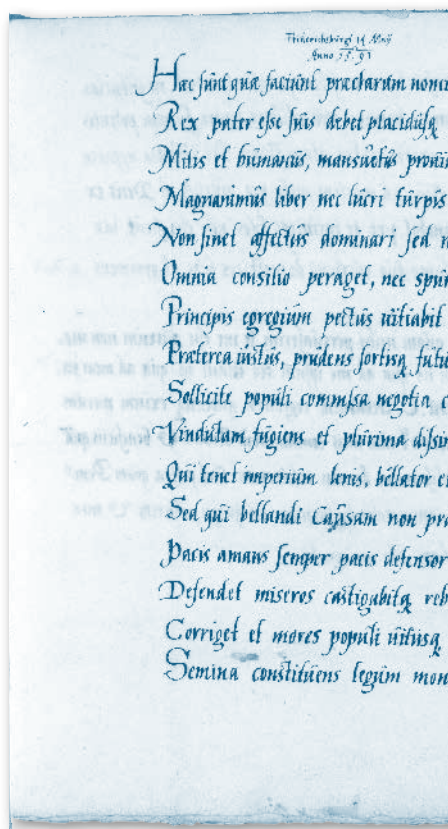 Friderichsburgi 14 Maij
Anno 1591
Hæc sunt quæ faciunt præclarum
Rex pater esse suis debet placidusq
Mitis et humanus, mansuetus
Magnanimus liber nec lucri turpis
Non sinet affectus dominari sed
Omnia consilio peraget, nec
Principis egregium pectus uitiabit
Præterea iustus, prudens fortisq
Sollicite populi commissa negotia
Vindictam fugiens et plurima
Qui tenet imperium lenis, bellator
Sed qui bellandi Caussam non
Pacis amans semper pacis defensor
Defendet miseros castigabitq
Corriget et mores populi uitiisq
Semina constituens legum